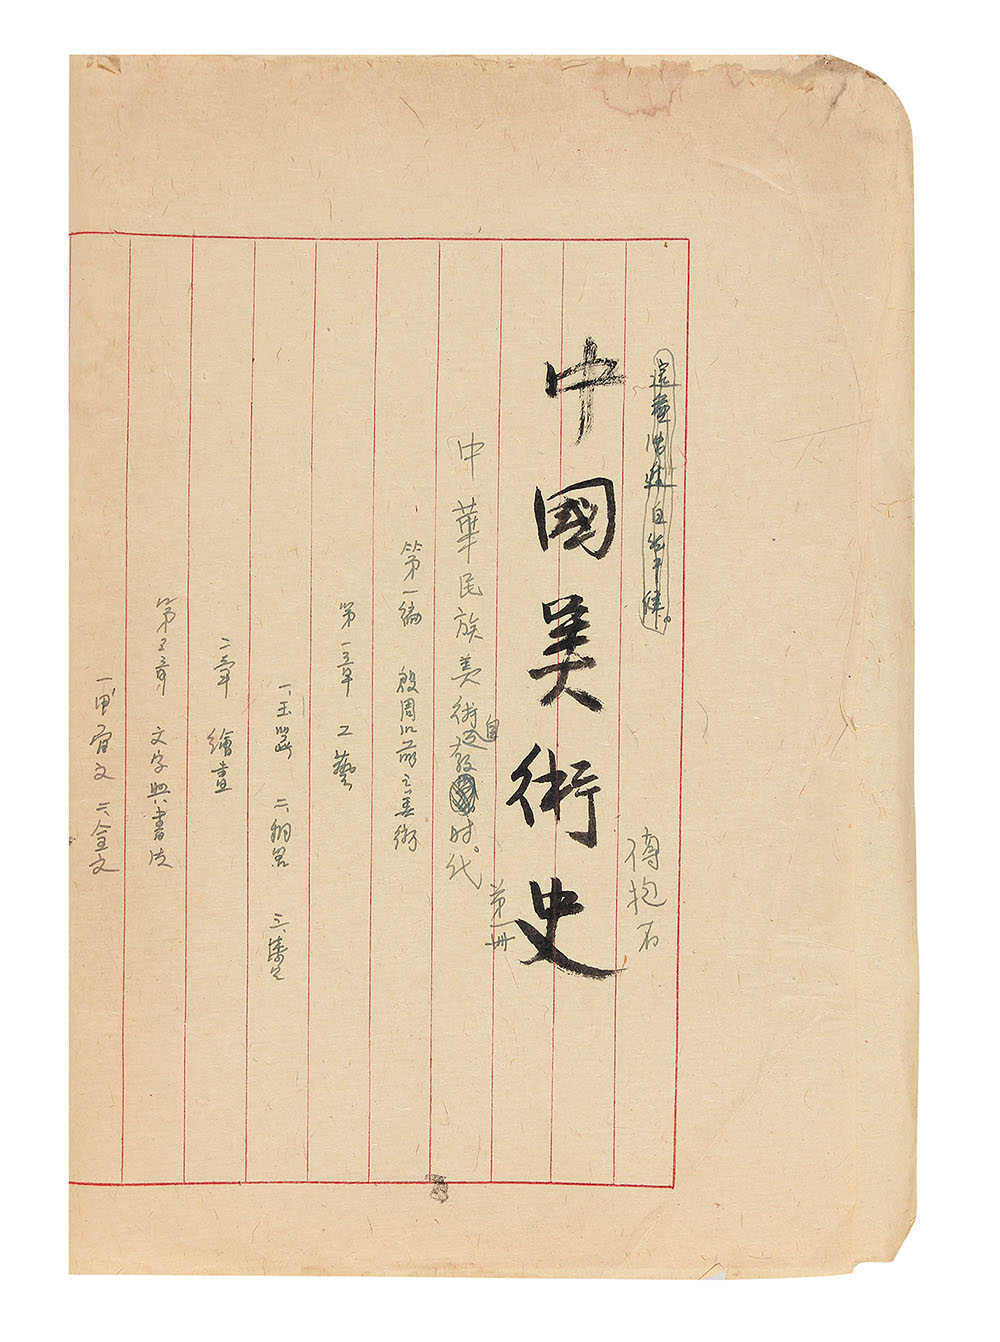 中國美術史
傅抱石
第一冊
中華民族美術自發时代
第一編 殷周以前之美術
第一章 工藝
一、玉器 二、銅器 三、漆器
二章 繪畫
第三章 文字與書法
一、甲骨文 二、金文